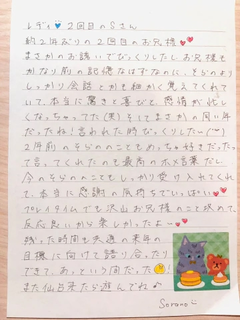 レディ♥2回目のSさん
約2年ぶりの2回目のお兄様♥♥
まさかのお誘いでびっくりしたし、お兄様も
かなり前の記憶なはずなのに、そらのより
しっかり会話とかも細かく覚えてくれて
いて、本当に驚きと喜びと感情が忙し
くなっちゃってた(笑)そしてまさかの同い年
だったね！言われた時びっくりしたー
2年前のそらのこともめっちゃ好きだった
て言ってくれたのも最高のホメ言葉だし、
今のそらのこともしっかり受け入れてくれ
て、本当に感謝の気持ちでいっぱい♥
プレイタイムでも沢山お兄様のこと攻めて、
反応良いから楽しかったよー♥
残った時間も共通の来年の
目標に向けて語り合ったり
できて、あっという間だった！
また仙台来たら遊んでね♪
Sorano